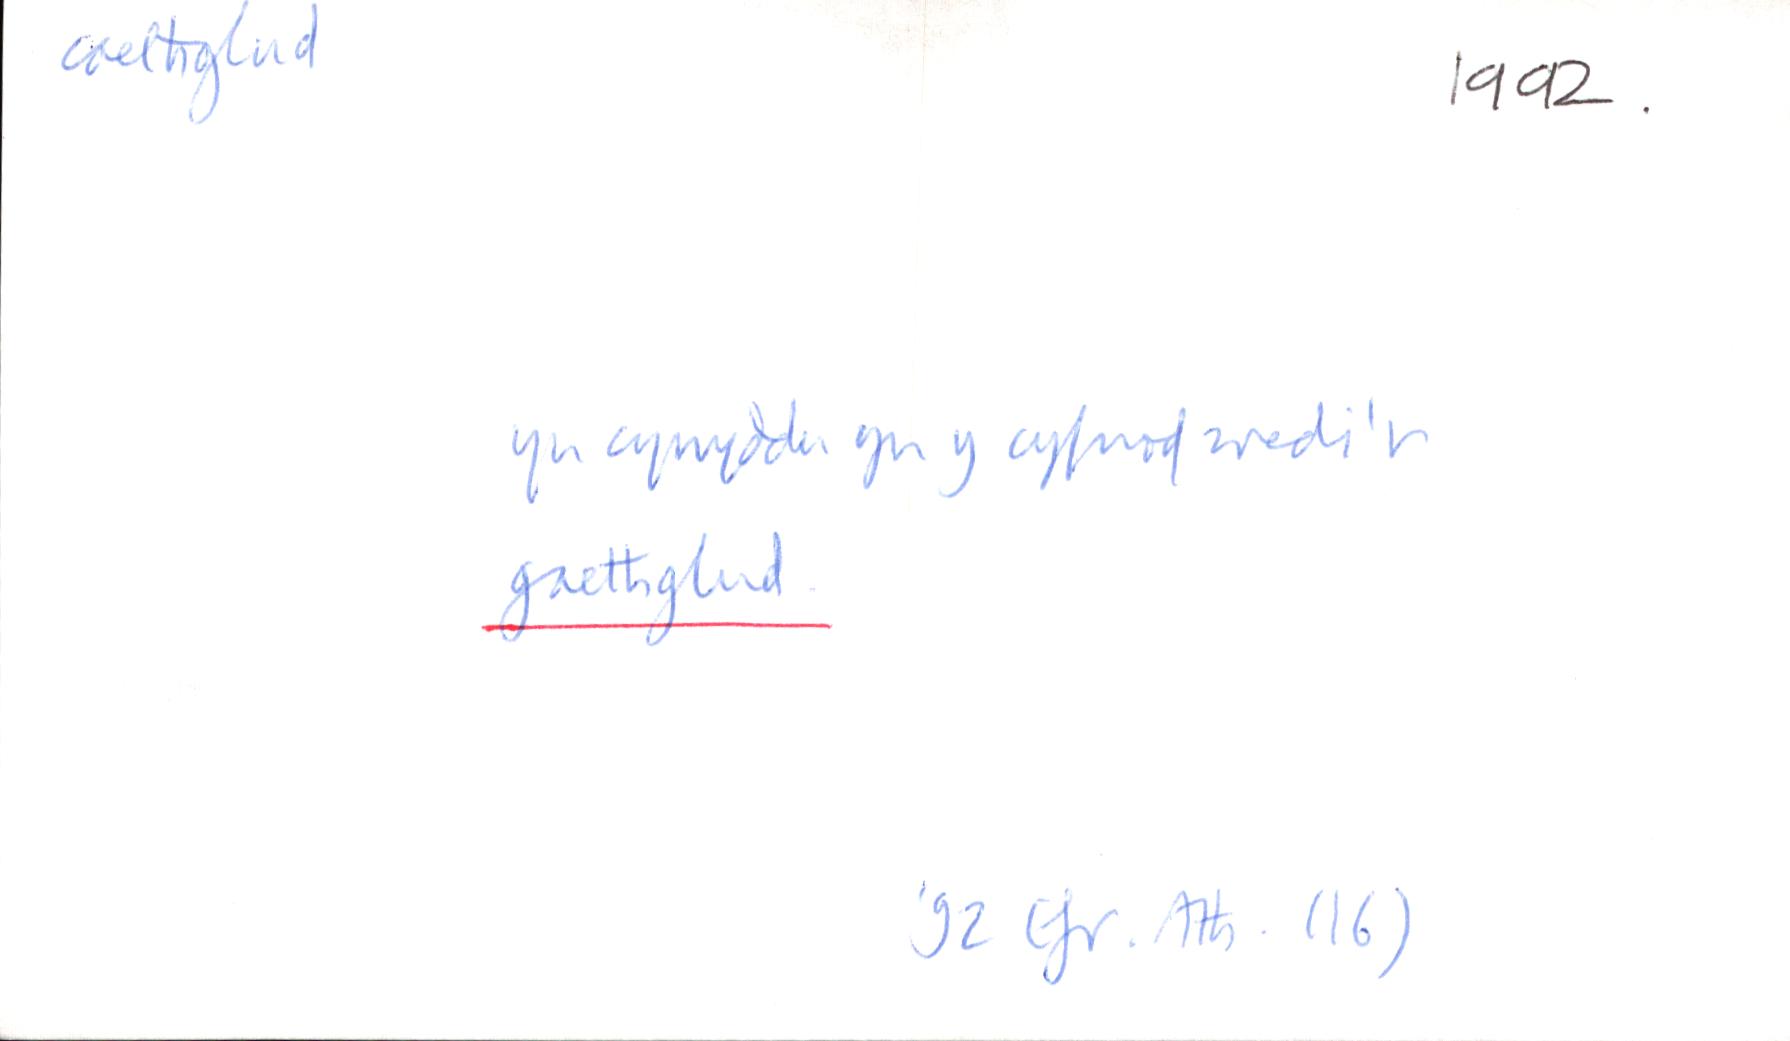 caethglud
1992.
yn cynyddu yn y cyfnod wedi'r
gaethglud.
'92 Efr. Ath. (16)